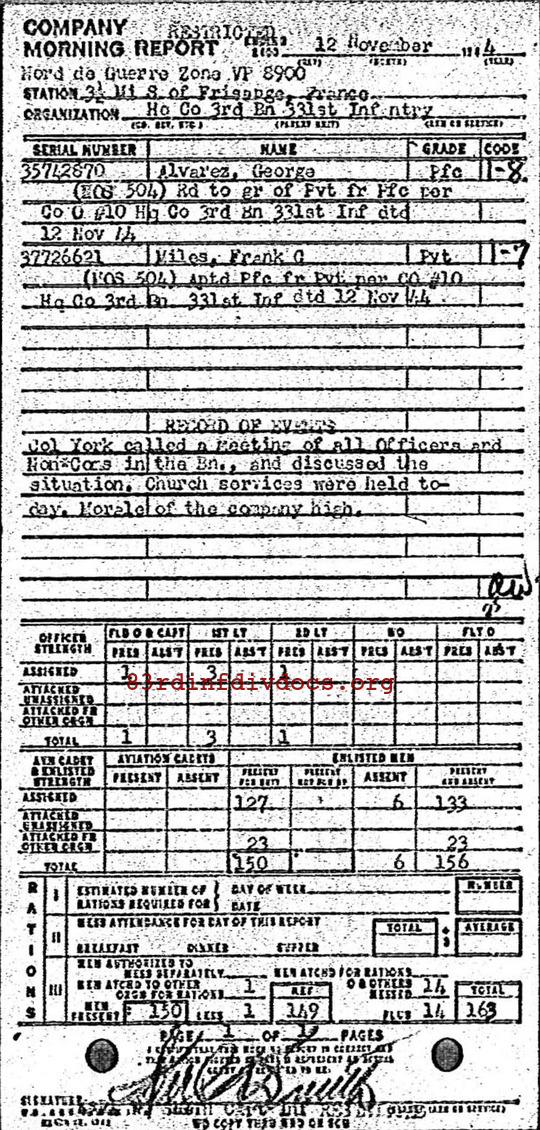 COMPANY
MORNING REPORT
RESTRICTED
12 November 4
Nord de Guerre Zone VP 8900
STATION 3½ Mi S of Frisange, France
ORGANIZATION Hq Co 3rd Bn 331st Infantry
SERIAL NUMBER NAME GRADE CODE
35742870 Alvarez, George Pfc 1-8
(MOS 504) Rd to gr of Pvt fr Pfc per
Co O #10 Hq Co 3rd Bn 331st Inf dtd
12 Nov 44
37726621 Miles, Frank C Pvt 1-7
(MOS 504) Aptd Pfc fr Pvt per CO #10
Hq Co 3rd Bn 331st Inf dtd 12 Nov 44
RECORD OF EVENTS
Col York called a meeting of all Officers and
Non-Coms in the Bn., and discussed the
situation. Church services were held to-
day. Morale of the company high.
OFFICER STRENGTH FLD O & CAPT 1ST LT 2D LT WO FLT O
PRES ABS'T PRES ABS'T PRES ABS'T PRES ABS'T PRES ABS'T
ASSIGNED 1 3 1
83rdinfdivdocs.org
ATTACHED UNASSIGNED
ATTACHED FR OTHER ORGN
TOTAL 1 3 1
AVN CADET & ENLISTED STRENGTH AVIATION CADETS ENLISTED MEN
PRESENT ABSENT PRESENT FOR DUTY PRESENT NOT FOR DY ABSENT PRESENT AND ABSENT
ASSIGNED 127 6 133
ATTACHED UNASSIGNED
ATTACHED FR OTHER ORGN 23 23
TOTAL 150 6 156
RATIONS
I ESTIMATED NUMBER OF RATIONS REQUIRED FOR DAY OF WEEK DATE NUMBER
II MESS ATTENDANCE FOR DAY OF THIS REPORT TOTAL ÷ 3 AVERAGE
BREAKFAST DINNER SUPPER
III MEN AUTHORIZED TO MESS SEPARATELY MEN ATCHD FOR RATIONS
MEN ATCHD TO OTHER ORGN FOR RATIONS 1 NET O & OTHERS MESSED 14 TOTAL
MEN PRESENT 150 LESS 1 149 PLUS 14 163
PAGE 1 OF 1 PAGES
SIGNATURE